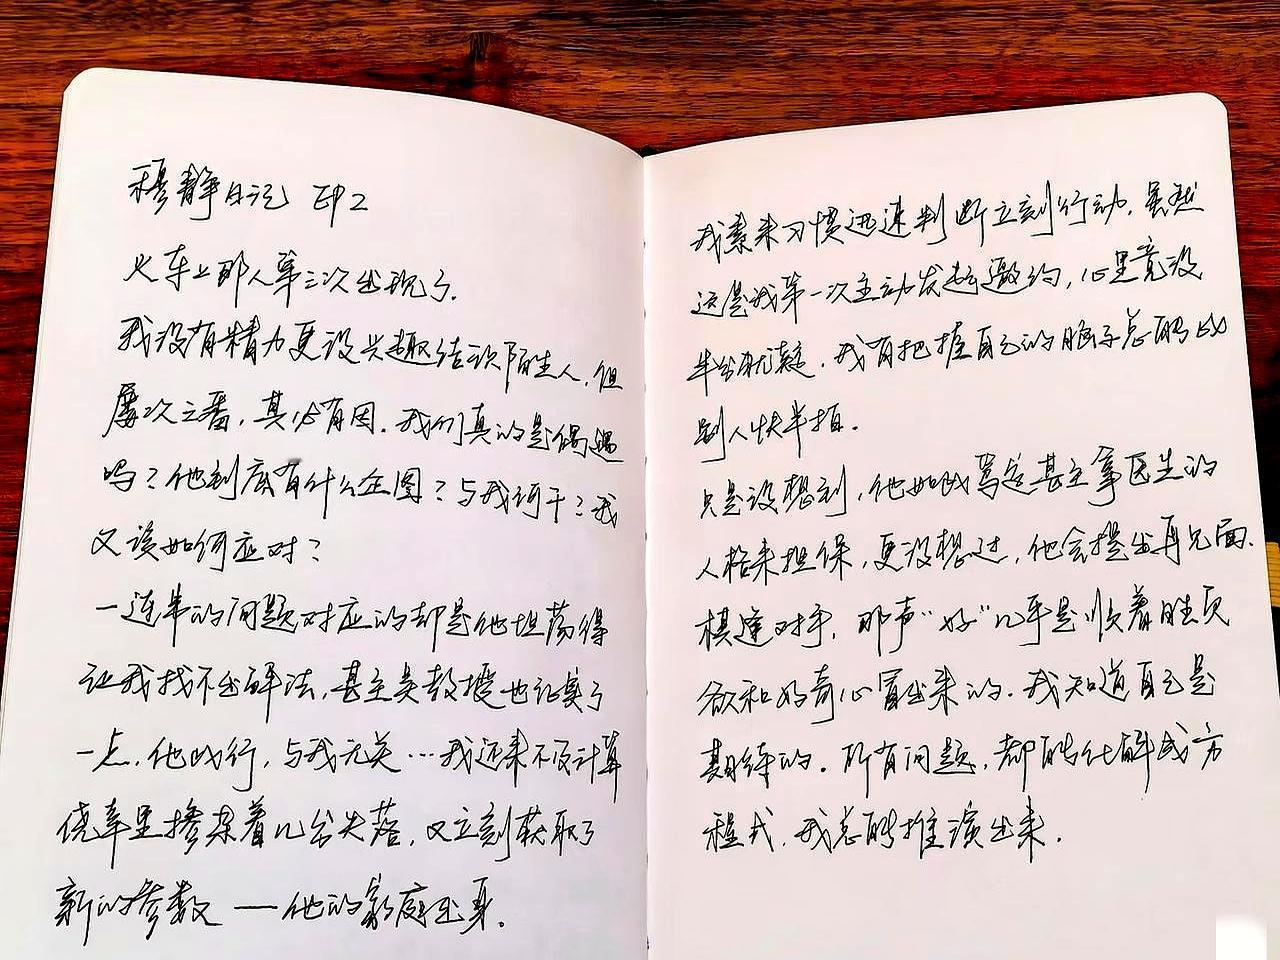 穆静日记 EP2
火车上那人第三次出现了.
我没有精力更没兴趣结识陌生人.但
屡次三番,其必有因.我们真的是偶遇
吗?他到底有什么企图?与我何干?我
又该如何应对?
一连串的问题对应的却是他坦荡得
让我找不出解法.甚至吴教授也证实了
一点.他此行,与我无关…我还来不及计算
侥幸里掺杂着几分失落,又立刻获取了
新的参数——他的家庭出身.
我素来习惯迅速判断立刻行动.虽然
这是我第一次主动发起邀约,心里竟没
半分犹疑.我有把握自己的脑子总能比
别人快半拍.
只是没想到,他如此笃定甚至拿医生的
人格来担保,更没想过,他会提出再见面.
棋逢对手.那声"好"几乎是顺着胜负
欲和好奇心冒出来的.我知道自己是
期待的.所有问题,都能化解成方
程式.我总能推演出来.